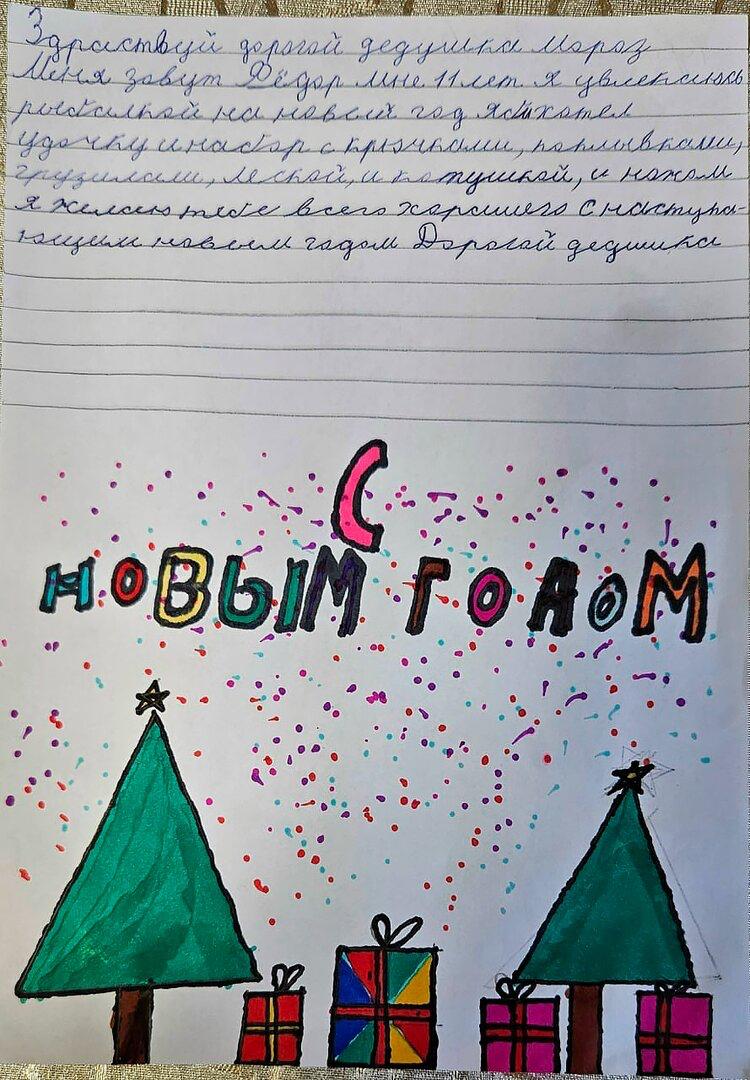 Здраствуй дорогой дедушка Мороз
Меня зовут Фёдор мне 11 лет я увлекаюсь
рыбалкой на новый год я бы хотел
удочку и набор с крючками, поплывками,
грузилами, леской, и катушкой, и ножом
я желаю тебе всего хорошего с наступа-
ющим новым годом Дорогой дедшика
С
НОВЫМ ГОДОМ